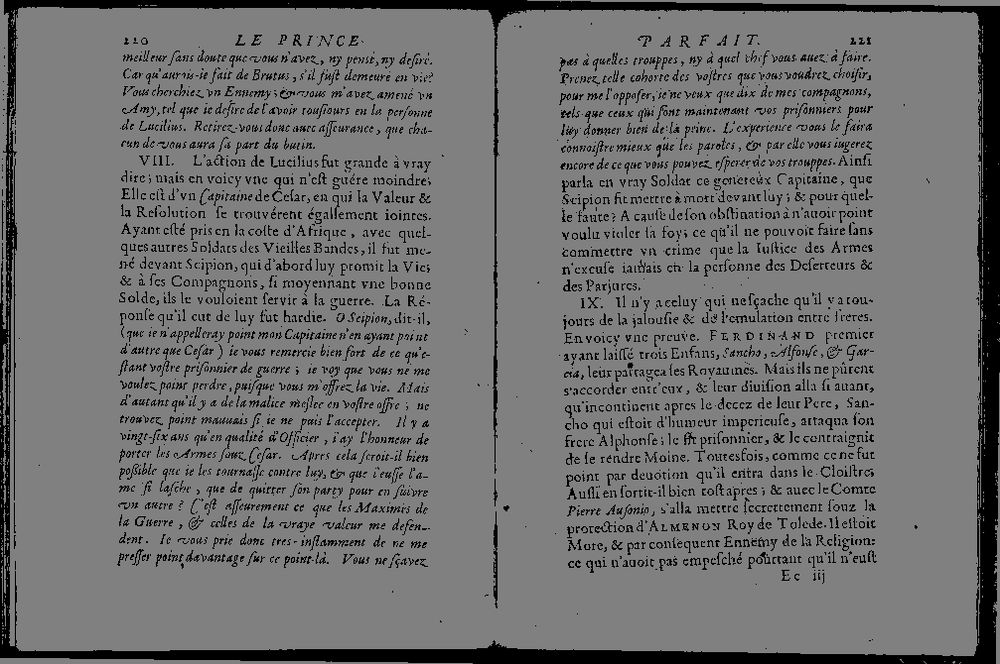 220 LE PRINCE
meilleur sans doute que vous n'avez, ny pensé, ny desiré.
Car qu'aurois-ie fait de Brutus, s'il fust demeuré en vie?
Vous cherchiez vn Ennemy; & vous m'avez amené vn
Amy, tel que ie desire de l'avoir tousiours en la personne
de Lucilius. Retirez-vous donc auec asseurance, que cha-
cun de vous aura sa part du butin.
VIII. L'action de Lucilius fut grande à vray
dire; mais en voicy vne qui n'est guére moindre;
Elle est d'vn Capitaine de Cesar, en qui la Valeur &
la Resolution se trouvérent égallement iointes.
Ayant esté pris en la coste d'Afrique, avec quel-
ques autres Soldats des Vieilles Bandes, il fut me-
né devant Scipion, qui d'abord luy promit la Vie;
& à ses Compagnons, si moyennant vne bonne
Solde, ils le vouloient servir à la guerre. La Ré-
ponse qu'il eut de luy fut hardie. O Scipion, dit-il,
(que ie n'appelleray point mon Capitaine n'en ayant point
d'autre que Cesar) ie vous remercie bien fort de ce qu'e-
stant vostre prisonnier de guerre; ie voy que vous ne me
voulez point perdre, puisque vous m'offrez la vie. Mais
d'autant qu'il y a de la malice meslee en vostre offre; ne
trouvez point mauuais si ie ne puis l'accepter. Il y a
vingt-six ans qu'en qualité d'Officier, i'ay l'honneur de
porter les Armes souz Cesar. Apres cela seroit-il bien
possible que ie les tournasse contre luy, & que i'eusse l'a-
me si lasche, que de quitter son party pour en suivre
vn autre? C'est asseurement ce que les Maximes de
la Guerre, & celles de la vraye valeur me defen-
dent. Ie vous prie donc tres-instamment de ne me
presser point davantage sur ce point-là. Vous ne sçavez
PARFAIT. 221
pas à quelles trouppes, ny à quel chef vous auez à faire.
Prenez telle cohorte des vostres que vous voudrez choisir,
pour me l'opposer, ie ne veux que dix de mes compagnons,
tels que ceux qui sont maintenant vos prisonniers pour
luy donner bien de la peine. L'experience vous le faira
connoistre mieux que les paroles, & par elle vous iugerez
encore de ce que vous pouvez esperer de vos trouppes. Ainsi
parla en vray Soldat ce genereux Capitaine, que
Scipion fit mettre à mort devant luy; & pour quel-
le faute? A cause de son obstination à n'auoir point
voulu violer la foy; ce qu'il ne pouvoit faire sans
commettre vn crime que la Iustice des Armes
n'excuse iamais en la personne des Deserteurs &
des Parjures.
IX. Il n'y a celuy qui ne sçache qu'il y a tou-
jours de la jalousie & de l'emulation entre freres.
En voicy vne preuve. FERDINAND premier
ayant laissé trois Enfans, Sancho, Alfonse, & Gar-
cia, leur partagea les Royaumes. Mais ils ne pûrent
s'accorder entr'eux, & leur division alla si auant,
qu'incontinent apres le decez de leur Pere, San-
cho qui estoit d'humeur imperieuse, attaqua son
frere Alphonse; le fit prisonnier, & le contraignit
de se rendre Moine. Toutesfois, comme ce ne fut
point par deuotion qu'il entra dans le Cloistre;
Aussi en sortit-il bien tost apres; & auec le Comte
Pierre Ausonio, s'alla mettre secrettement souz la
protection d'ALMENON Roy de Tolede. Il estoit
More, & par consequent Ennemy de la Religion:
ce qui n'auoit pas empesché pourtant qu'il n'eust
Ee iij